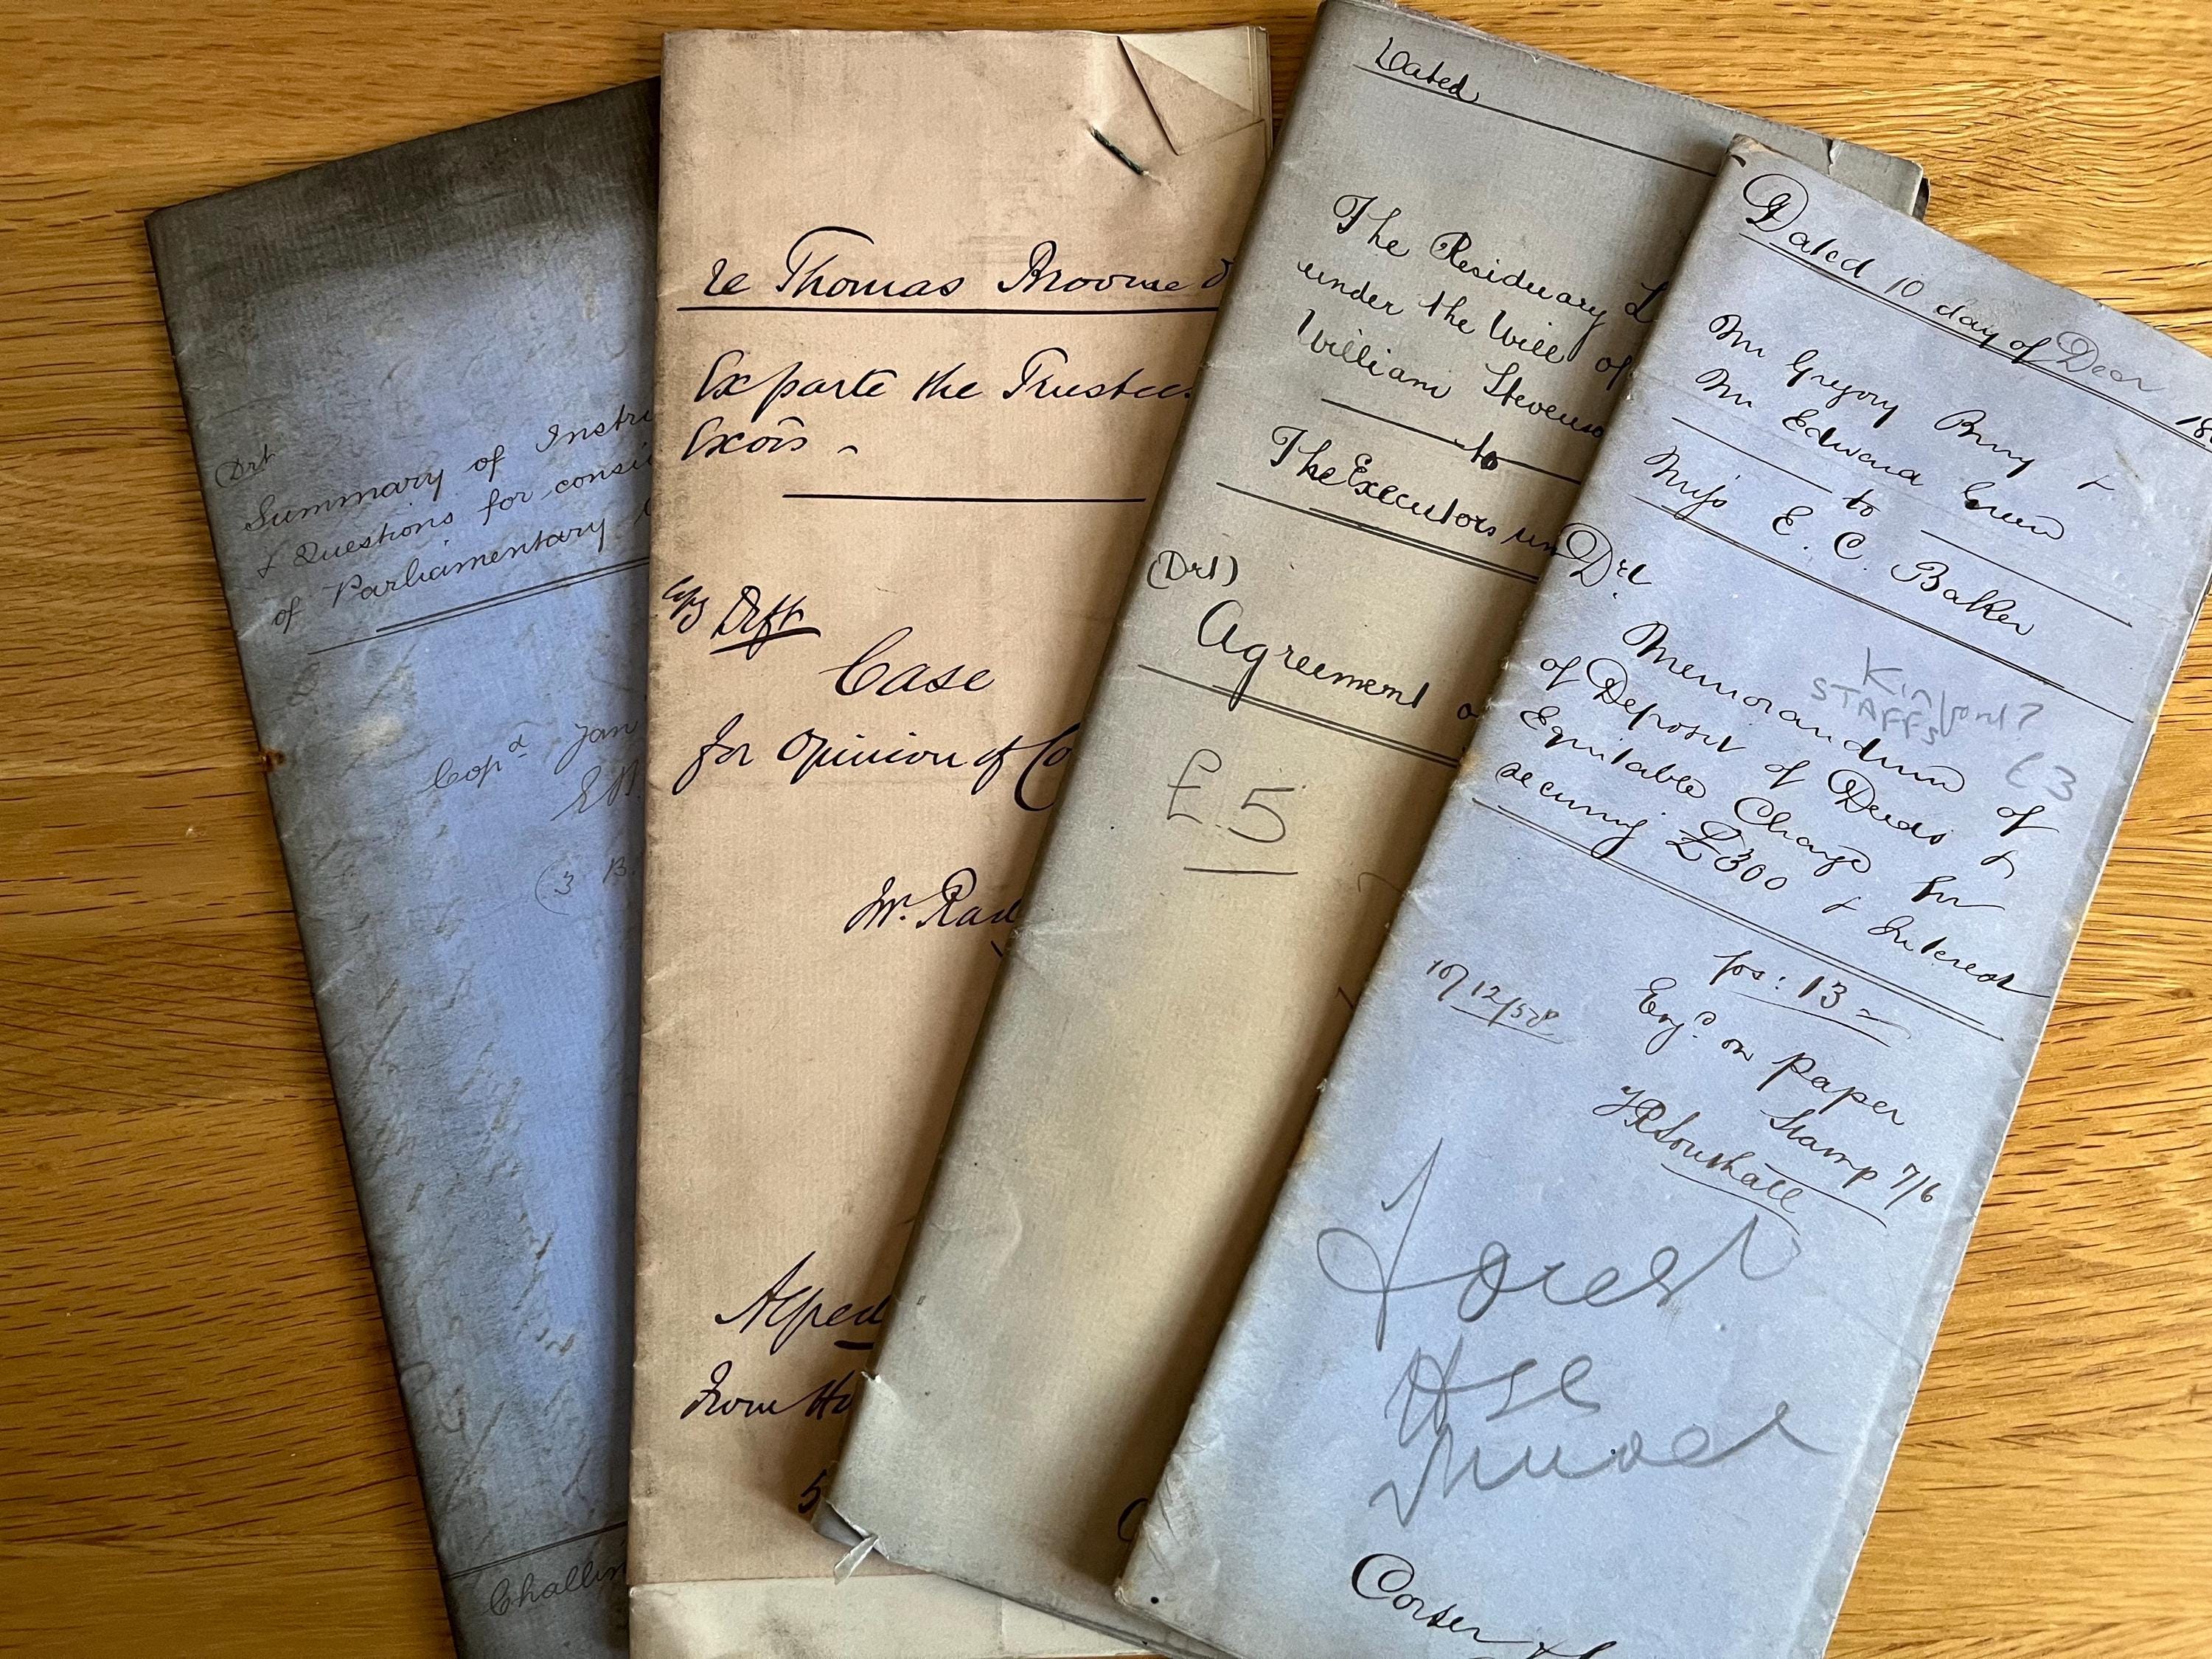 (Drt
Summary of Instru
& Questions for consi
of Parliamentary
Cop.d Jan
(3 B.
Challin
re Thomas Broome
Ex parte the Trustees
Exors
Copy Dft
Case
for Opinion of Co
Mr. Rad
Alfred
From
5
Dated
The Residuary L
under the Will of
William Stevens
to
The Executors un
(Drt)
Agreement
£5
Dated 10 day of Decr 18
Mr Gregory &
Mr Edward Green
to
Miss E. C. Baker
Drt
Memorandum of
of Deposit of Deeds &
Equitable Charge for
securing £300 & Interest
STAFFS
£3
fos: 13
10/12/58
Eng.d on paper
Stamp 7/6
Southall
Corser &